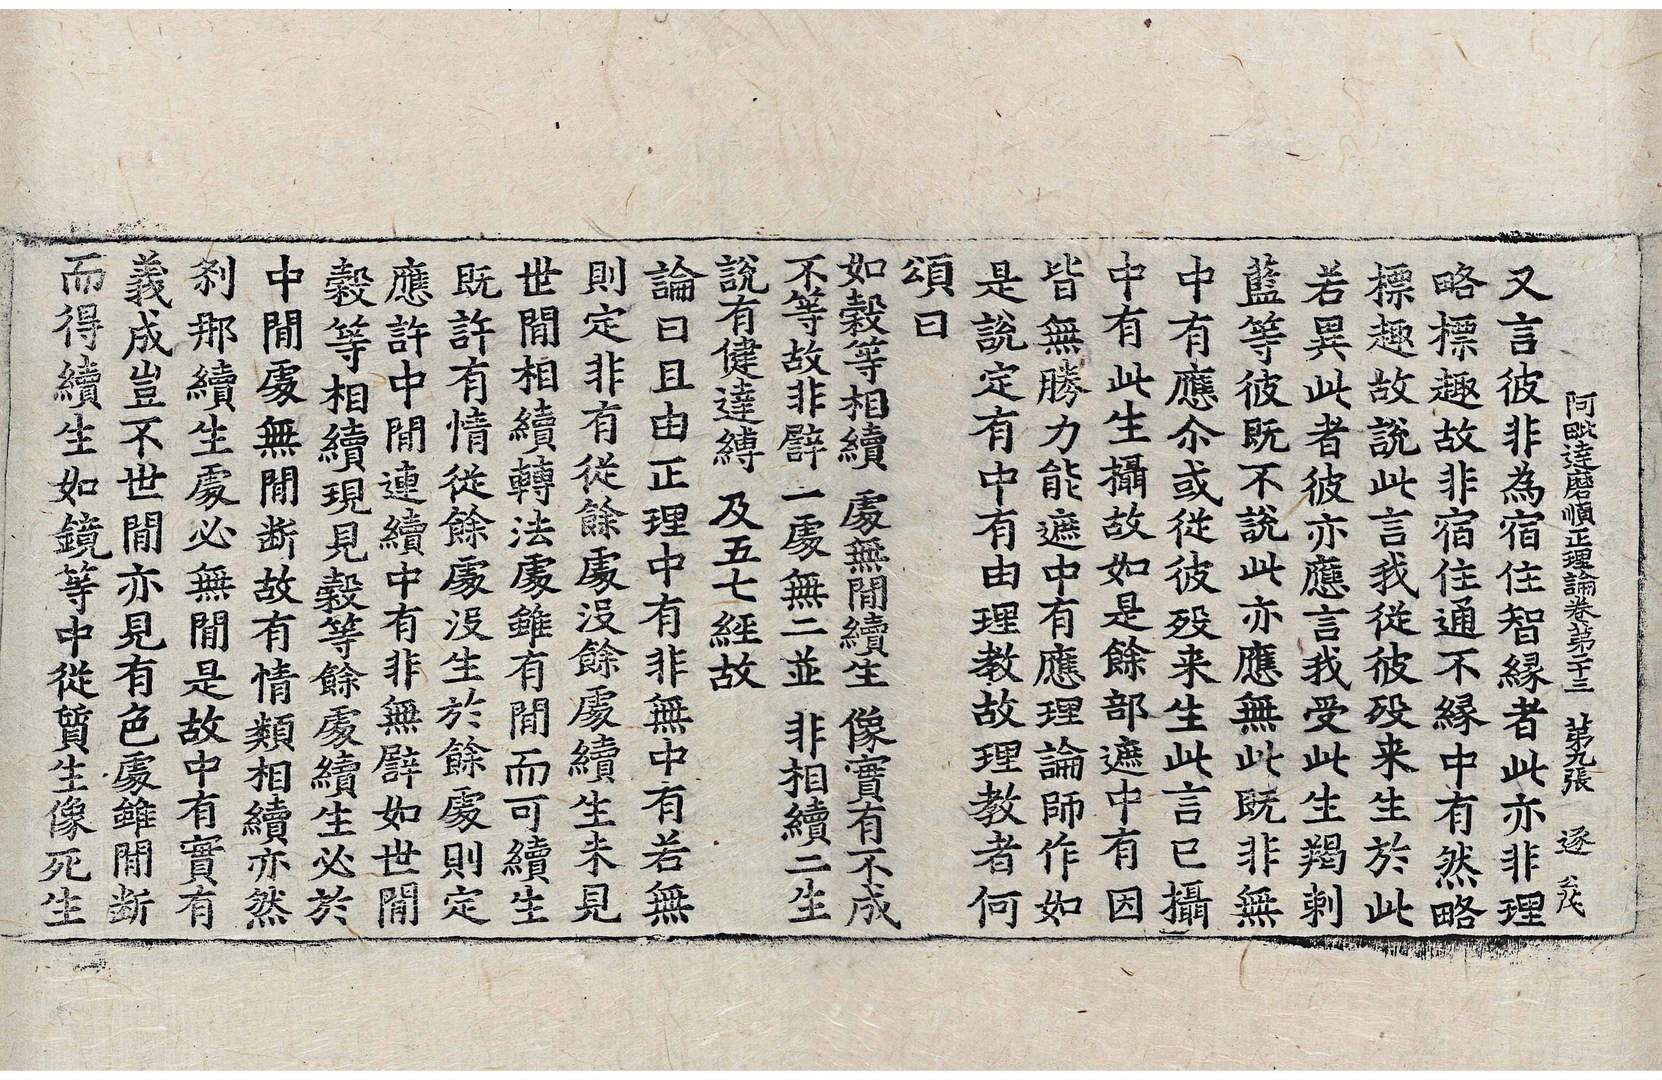 阿毗達磨順正理論卷第二十三 第九張 逐 茂
又言彼非為宿住智緣者此亦非理
略標趣故非宿住通不緣中有然略
標趣故說此言我從彼歿来生於此
若異此者彼亦應言我受此生羯剌
藍等彼既不說此亦應無此既非無
中有應尒或從彼歿来生此言已攝
中有此生攝故如是餘部遮中有因
皆無勝力能遮中有應理論師作如
是說定有中有由理教故理教者何
頌曰
如穀等相續 處無間續生 像實有不成
不等故非譬 一處無二並 非相續二生
說有健達縛 及五七經故
論曰且由正理中有非無中有若無
則定非有從餘處沒餘處續生未見
世間相續轉法處雖有間而可續生
既許有情從餘處沒生於餘處則定
應許中間連續中有非無譬如世間
穀等相續現見穀等餘處續生必於
中間處無間断故有情類相續亦然
刹那續生處必無間是故中有實有
義成豈不世間亦見有色處雖間断
而得續生如鏡等中從質生像死生